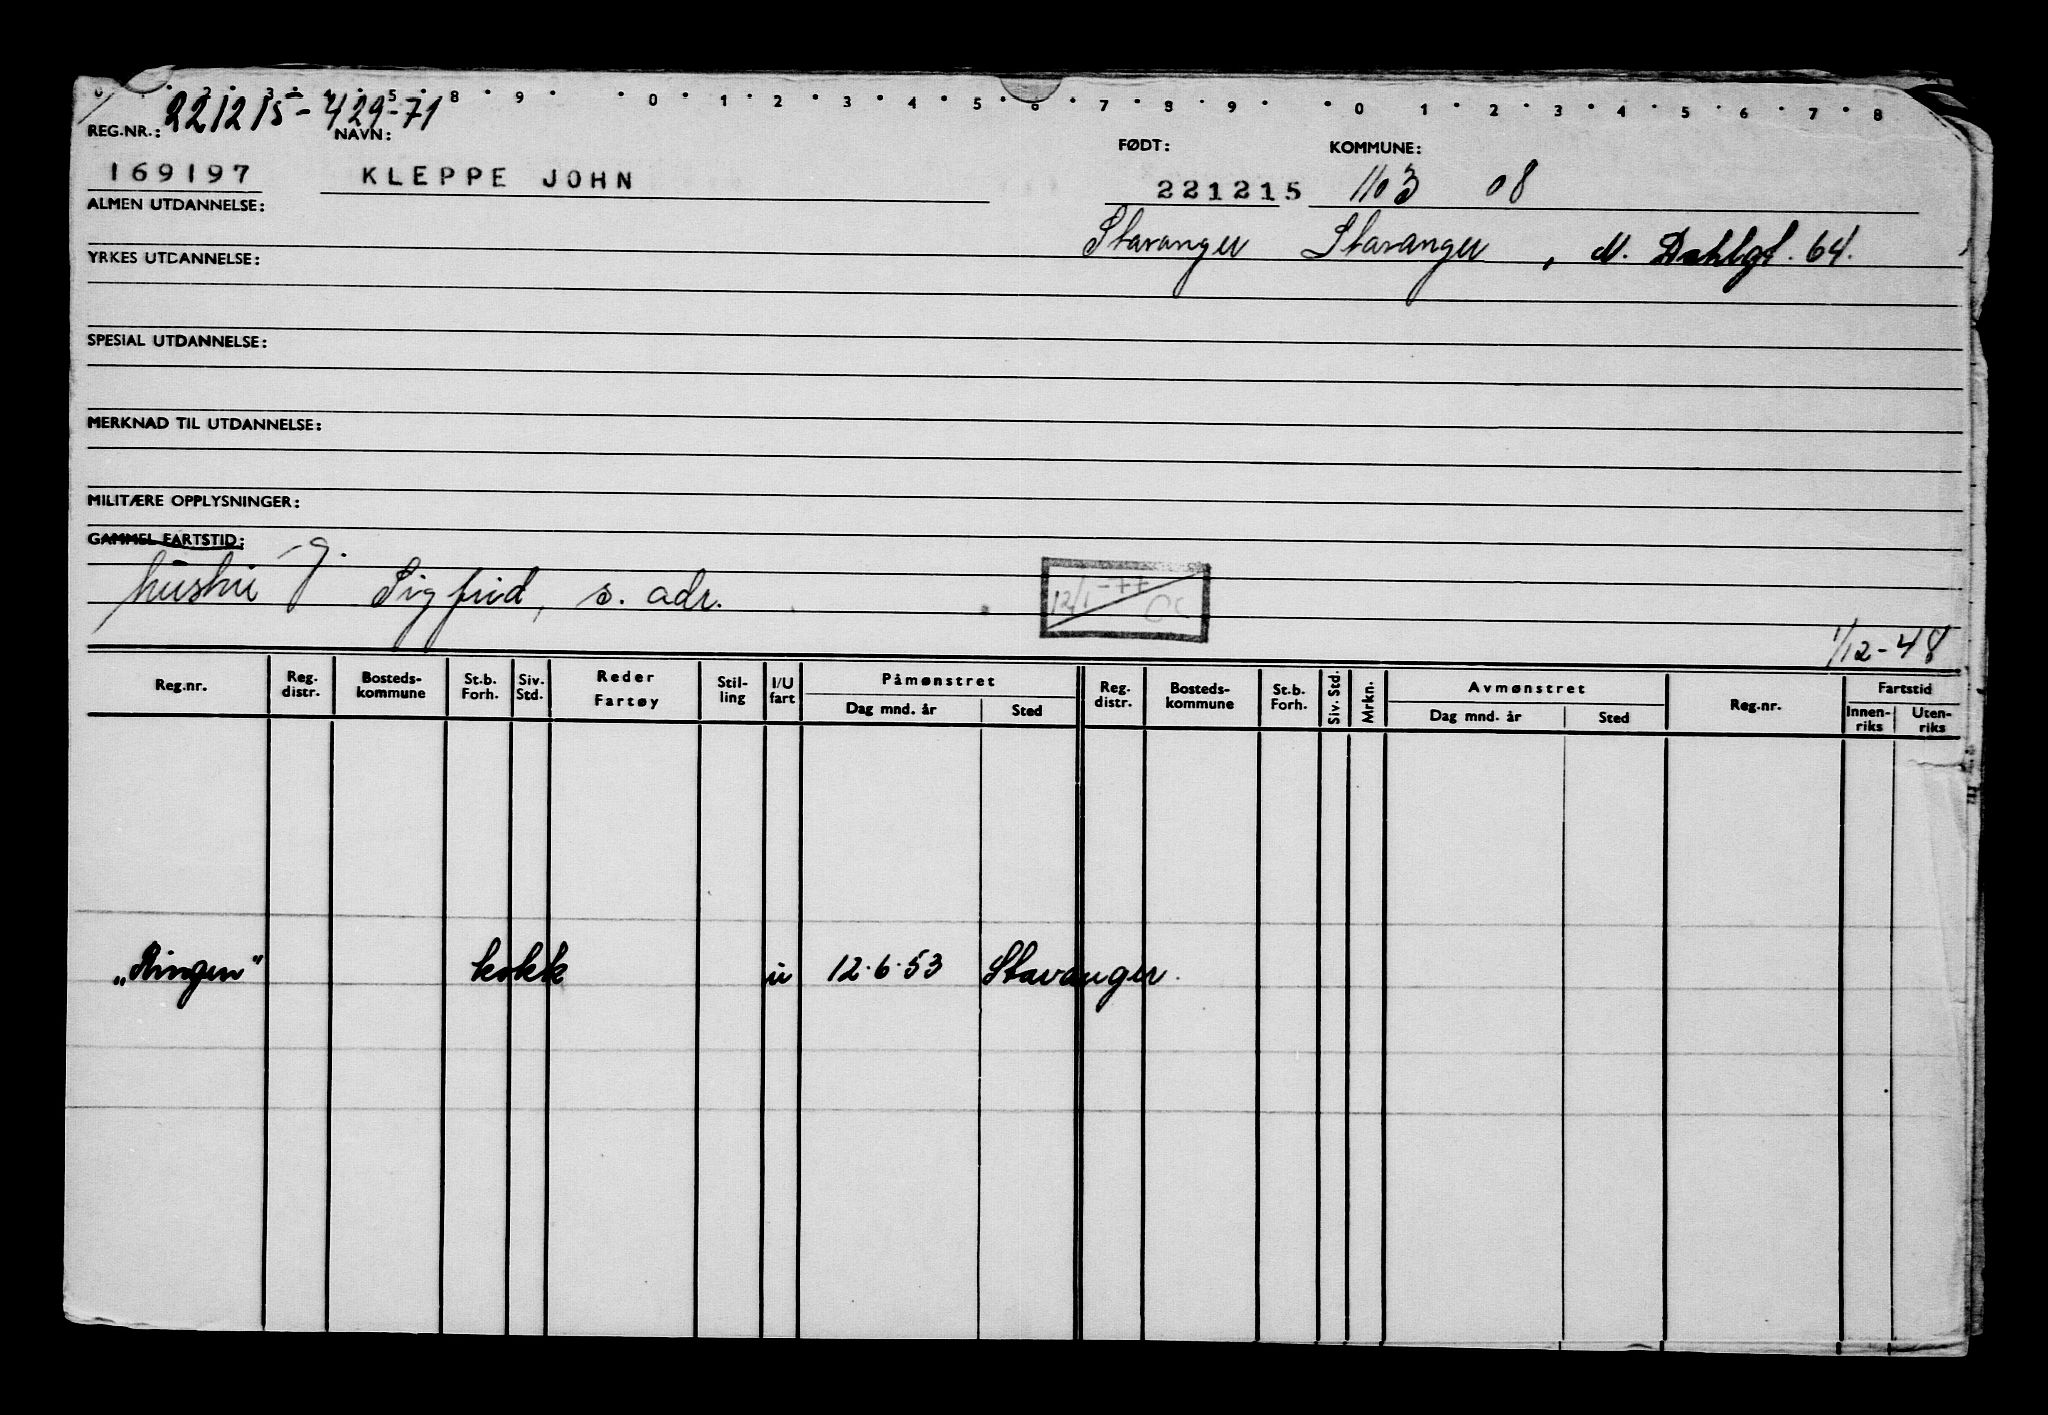 0 . . 2 . 3 . . 5 . 8 . 9 . . 0 . 1 . 2 . 3 . 4 . 5 . 6 . 7 . 8 . 9 . . 0 . 1 . 2 . 3 . 4 . 5 . 6 . 7 . 8
221215-429-71
REG.NR.: NAVN: FØDT: KOMMUNE:
169197 KLEPPE JOHN 221215 1103 08
ALMEN UTDANNELSE:
Stavanger Stavanger, M. Dahlgt. 64.
YRKES UTDANNELSE:
SPESIAL UTDANNELSE:
MERKNAD TIL UTDANNELSE:
MILITÆRE OPPLYSNINGER:
GAMMEL FARTSTID:
- g.
hustru Sigfrid, s. adr.
12/1-77
1/12-48
Reg.nr. Reg. distr. Bosteds- kommune St.b. Forh. Siv. Std. Reder Fartøy Stil- ling I/U fart Påmønstret Dag mnd. år Sted Reg. distr. Bosteds- kommune St.b. Forh. Siv. Std. Mrkn. Avmønstret Dag mnd. år Sted Reg.nr. Fartstid Innen- riks Uten- riks
„Ringen" kokk u 12.6.53 Stavanger.